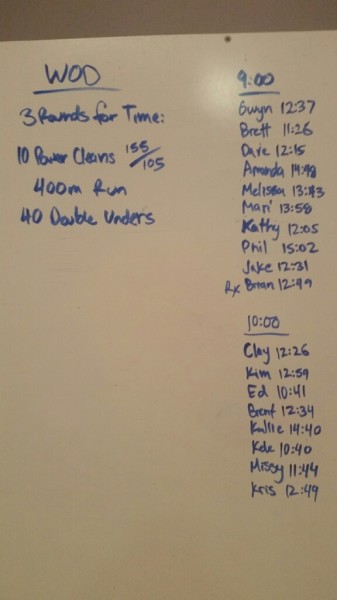 WOD
3 Rounds for Time:
10 Power Cleans 155/105
400m Run
40 Double Unders
9:00
Gwyn 12:37
Brett 11:26
Dave 12:15
Amanda 14:48
Melissa 13:43
Mari 13:58
Kathy 12:05
Phil 15:02
Jake 12:31
Rx Brian 12:49
10:00
Clay 12:26
Kim 12:59
Ed 10:41
Brent 12:34
Kallie 14:40
10:40
Missy 11:44
Kris 12:49